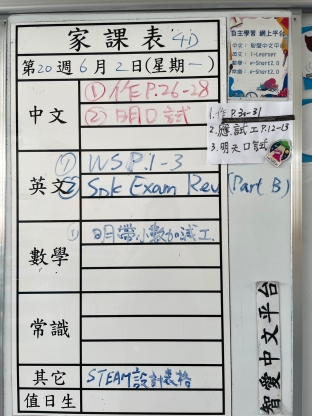 家課表 4D
第20週6月2日(星期一)
中文
① 作 P.26-28
② 明口試
英文
① WS P.1-3
② Spk Exam Rev (Part B)
數學
① 明帶小數加減工
常識
其它
STEAM設計表格
值日生
自主學習 網上平台
中文: 智愛中文平台
英文: i-Learner
數學: e-Smart2.0
常識: e-Smart2.0
1. 作 P.30-31
2. 應試工 P.12-13
3. 明天口試
智愛中文平台